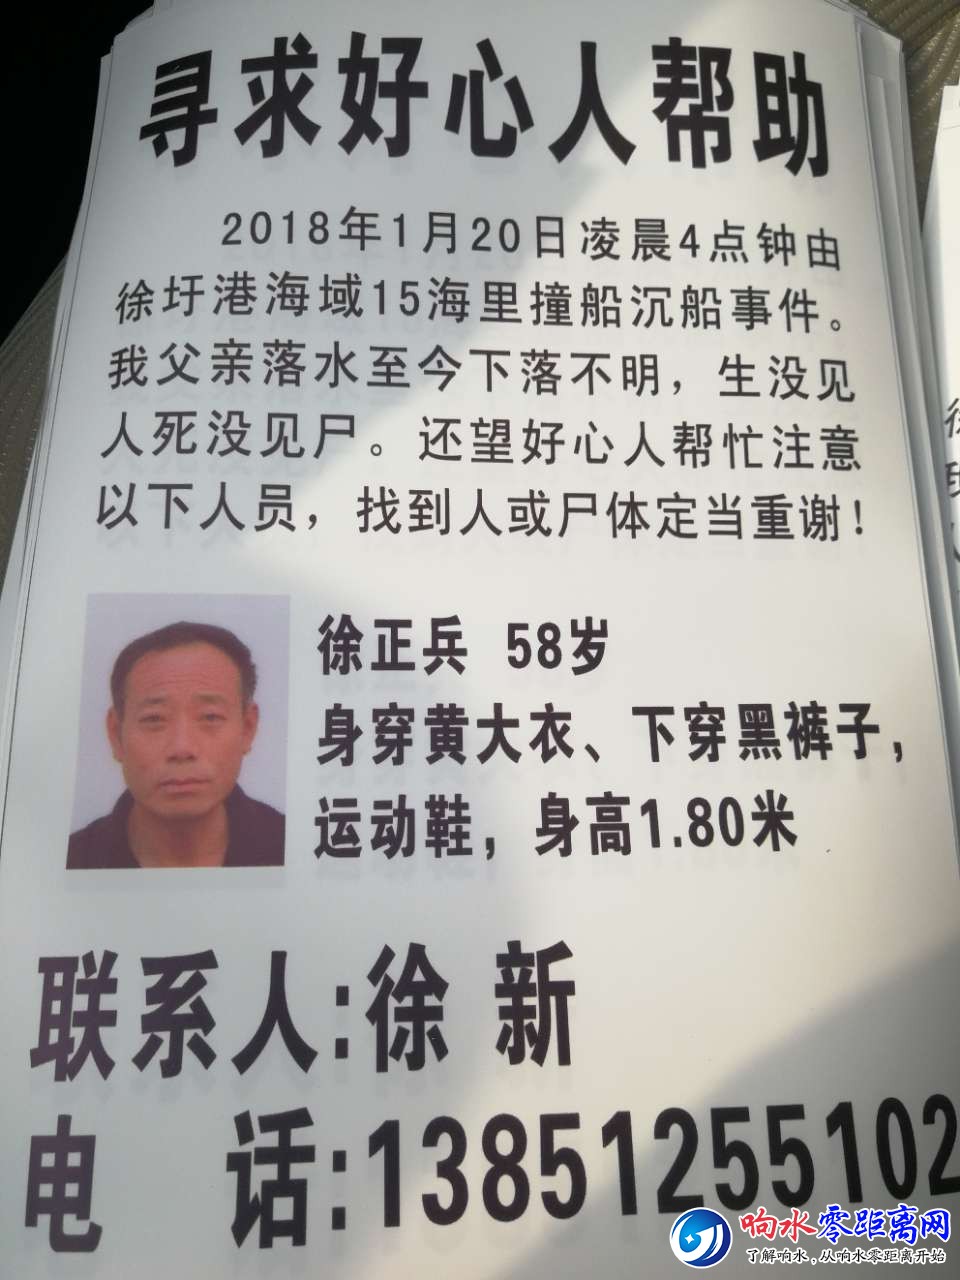 寻求好心人帮助
2018年1月20日凌晨4点钟由
徐圩港海域15海里撞船沉船事件。
我父亲落水至今下落不明，生没见
人死没见尸。还望好心人帮忙注意
以下人员，找到人或尸体定当重谢！
徐正兵 58岁
身穿黄大衣、下穿黑裤子，
运动鞋，身高1.80米
联系人:徐 新
电 话:13851255102
响水零距离网
了解响水,从响水零距离开始